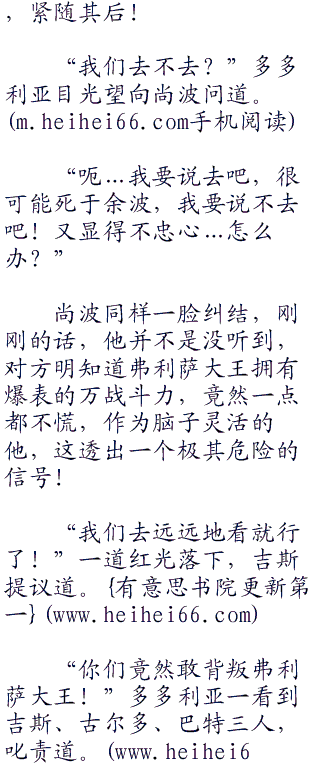 ，紧随其后！
“我们去不去？”多多
利亚目光望向尚波问道。
(m.heihei66.com手机阅读)
“呃…我要说去吧，很
可能死于余波，我要说不去
吧！又显得不忠心…怎么
办？”
尚波同样一脸纠结，刚
刚的话，他并不是没听到，
对方明知道弗利萨大王拥有
爆表的万战斗力，竟然一点
都不慌，作为脑子灵活的
他，这透出一个极其危险的
信号！
“我们去远远地看就行
了！”一道红光落下，吉斯
提议道。{有意思书院更新第
一}(www.heihei66.com)
“你们竟然敢背叛弗利
萨大王！”多多利亚一看到
吉斯、古尔多、巴特三人，
叱责道。(www.heihei6